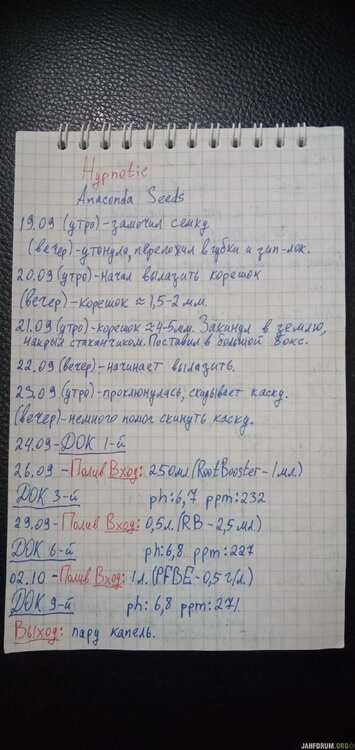 Hypnotic
Anaconda Seeds
19.09 (утро) - замочил семку
(вечер) - утонула, переложил в губки и зип-лок.
20.09 (утро) - начал вылазить корешок
(вечер) - корешок ≈ 1,5-2 мм.
21.09 (утро) - корешок ≈ 4-5мм. Закинул в землю,
накрыл стаканчиком. Поставил в большой бокс.
22.09 (вечер) - начинает вылазить.
23.09 (утро) - проклюнулась, скидывает каску.
(вечер) - немного помог скинуть каску.
24.09 - ДОК 1-й
26.09 - Полив Вход: 250мл (RootBooster - 1мл.)
ДОК 3-й ph: 6,7 ppm: 232
29.09 - Полив Вход: 0,5л. (RB - 2,5мл.)
ДОК 6-й ph: 6,8 ppm: 227
02.10 - Полив Вход: 1л. (PFBE - 0,5г/л.)
ДОК 9-й ph: 6,8 ppm: 271.
Выход: пару капель.
JAHFORUM.ORG